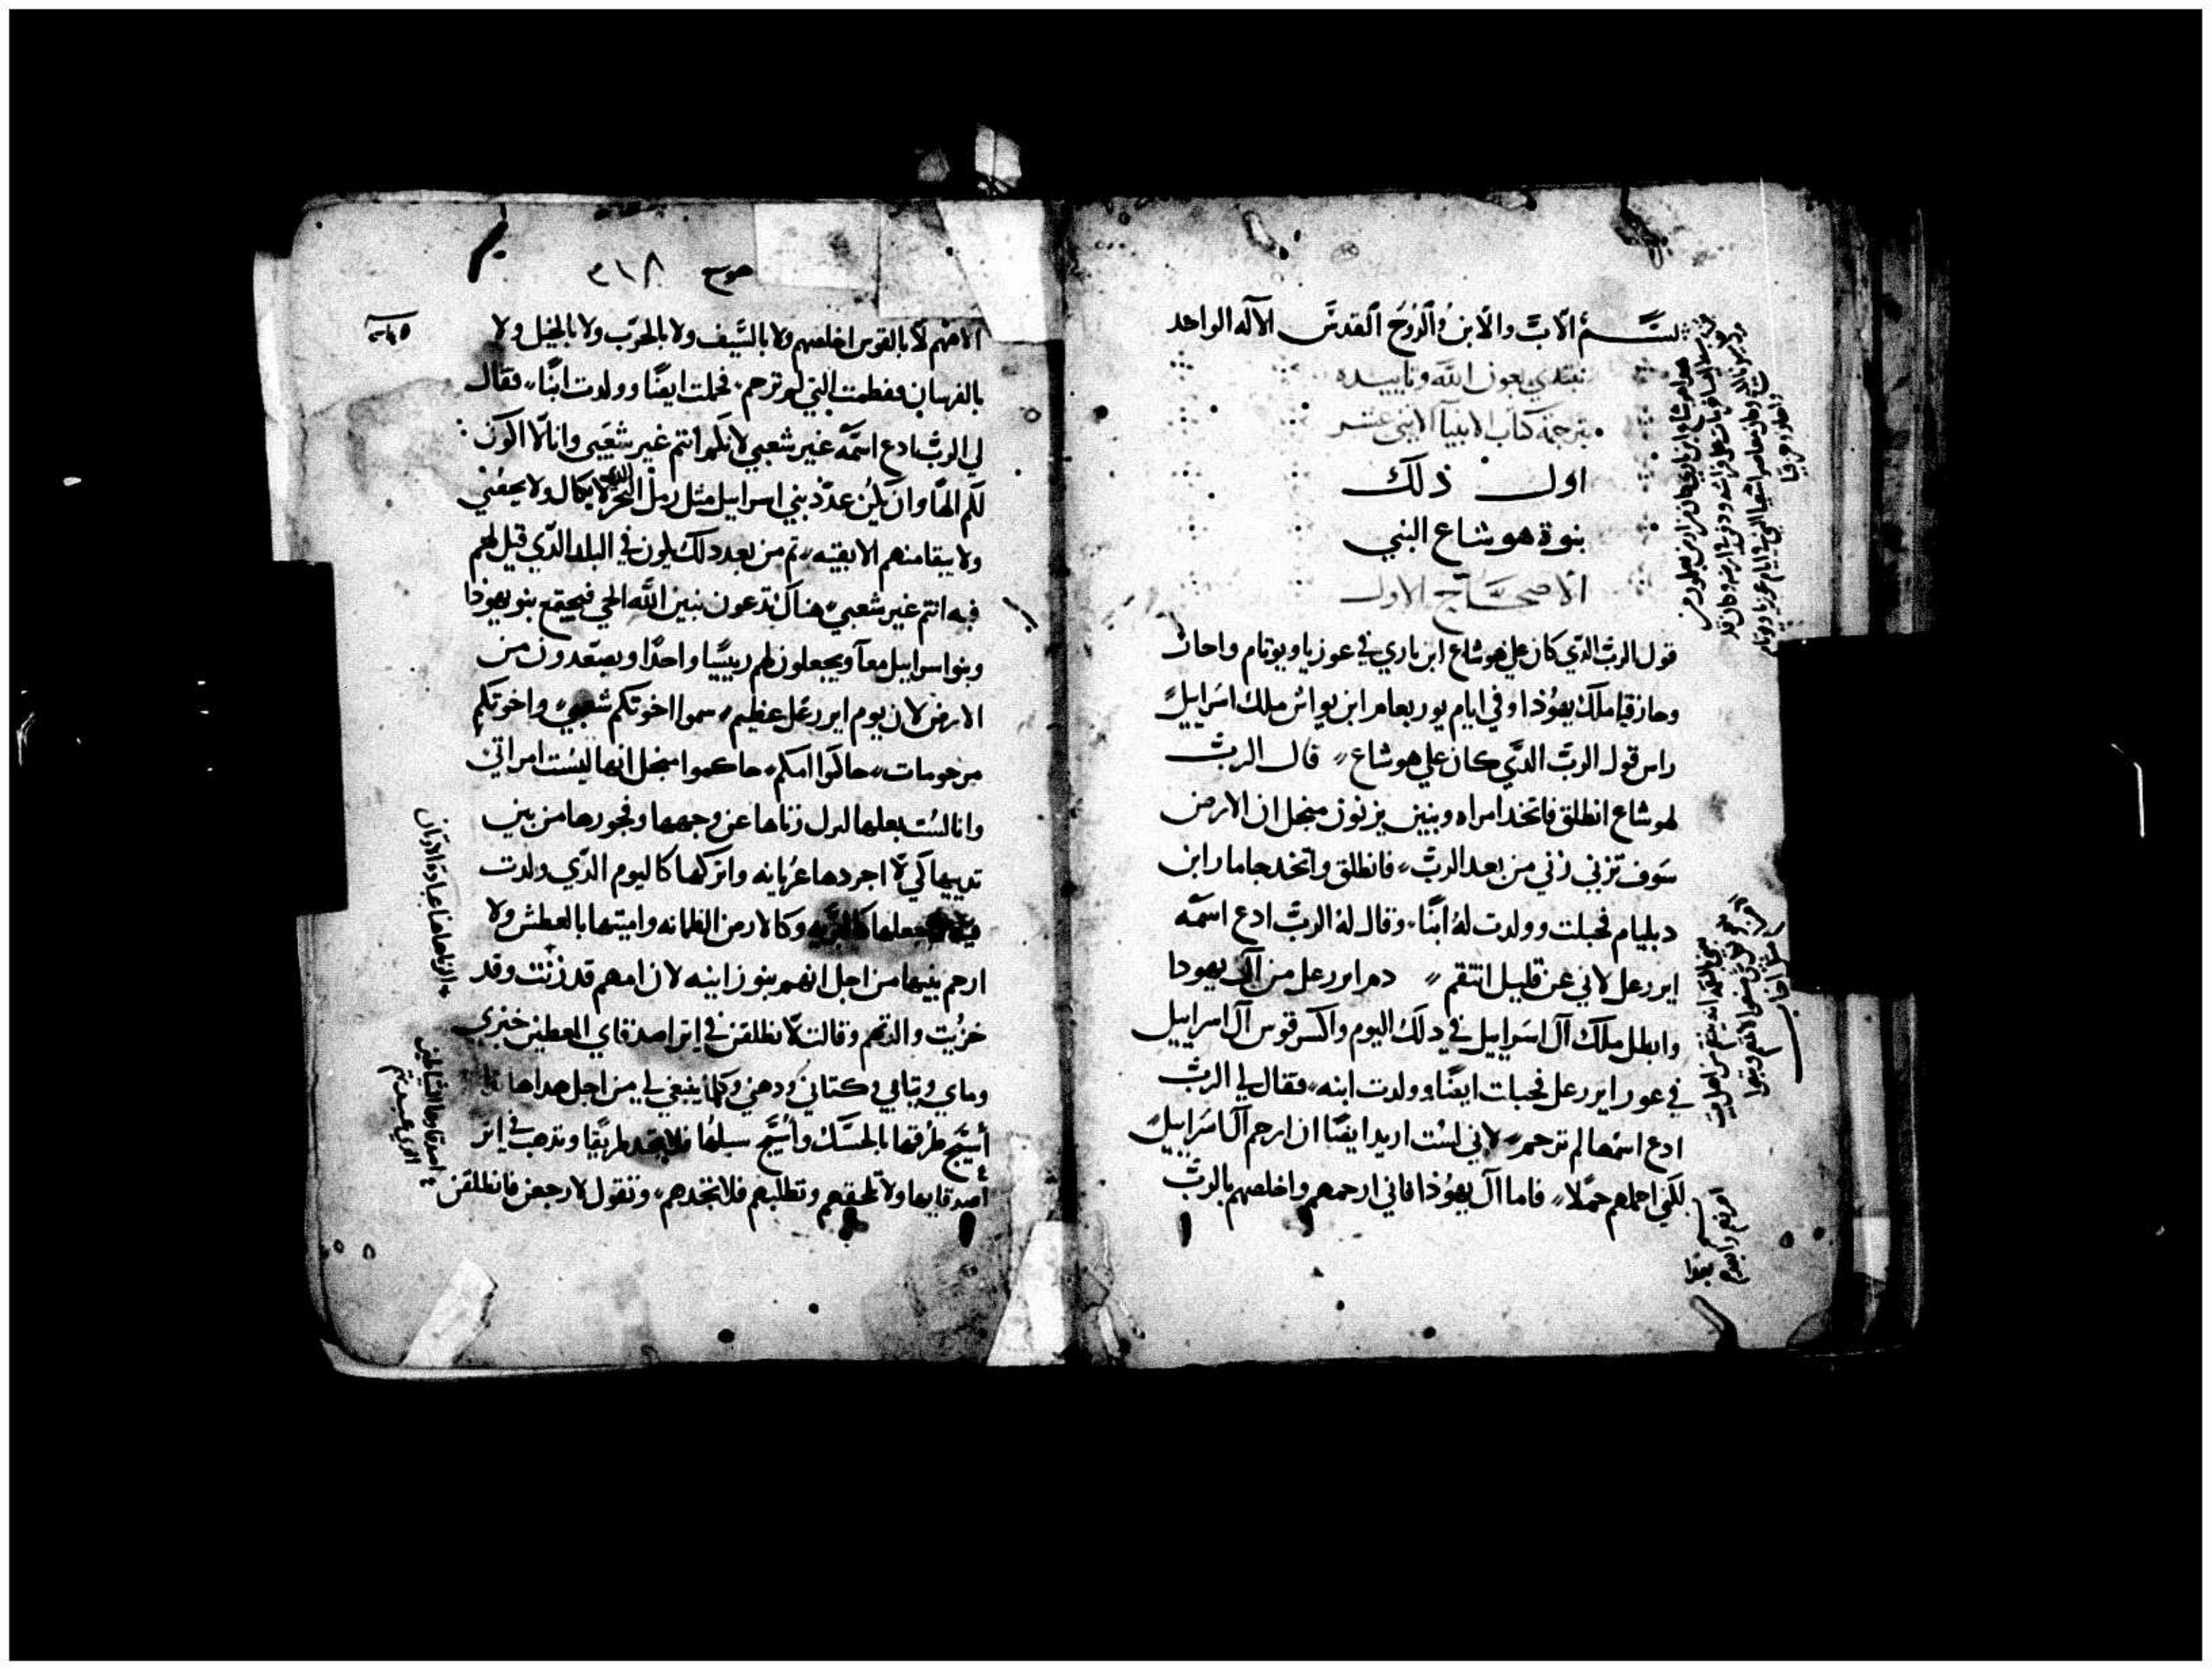 بسم الاب والابن والروح القدس الاله الواحد
نبتدي بعون الله وتاييده
بترجمة كتاب الانبيآ الاثنى عشر
اول ذلك
بنوة هوشاع النبي
الاصحاح الاول
قول الرب الذي كان علي هوشاع ابن باري في عوزيا ويوتام واحاز
وحازقيا ملك يهوذا وفي ايام يوربعام ابن يواش ملك اسراييل
راس قول الرب الذي كان علي هوشاع قال الرب
لهوشاع انطلق فاتخد امراه وبنين يزنون منجل ان الارض
سوف تزني زني من بعد الرب فانطلق واتخد جاما رابن
دبليام فحبلت وولدت له ابنا وقال له الرب ادع اسمه
ايررعل لاني عن قليل انتقم دم ايررعل من آل يهودا
وابطل ملك آل اسراييل في دلك اليوم واكسر قوس آل اسراييل
في عور ايررعل فحبلت ايضا وولدت ابنه فقال لي الرب
ادع اسمها لم ترحم لاني لست اريد ايضا ان ارحم آل اسراييل
لكني احملهم حملا فاما آل يهوذا فاني ارحمهم واخلصهم بالرب
هوشع ٢١٨
الاههم لا بالقوس اخلصهم ولا بالسيف ولا بالحرب ولا بالخيل ولا
بالفرسان ففطمت التي لم ترحم فحملت ايضا وولدت ابنا فقال
لي الرب ادع اسمه غير شعبي لانكم انتم غير شعبي وانا لا اكون
لكم الها وان يكن عدد بني اسراييل مثل رمل البحر لا يكال ولا يحصي
ولا يبقا منهم الا بقيه تم من بعد دلك يكون في البلد الذي قيل لهم
فيه انتم غير شعبي هناك تدعون بنين الله الحي فيجتمع بنو يهوذا
وبنو اسراييل معآ ويجعلون لهم رييسا واحدا ويصعدون من
الارض لان يوم ايررعل عظيم سموا اخوتكم شعبي واخوتكم
مرحومات حاكموا امكم حاكموا منجل انها ليست امراتي
وانا لست بعلها لتزل زناها عن وجهها وفجورها من بين
تدييها كي لا اجردها عريانه واتركها كاليوم الذي ولدت
فيه واجعلها كالبريه وكالارض الظمانه واميتها بالعطش ولا
ارحم بنيها من اجل انهم بنو زانيه لان امهم قد زنت وقد
خزيت والدتهم وقالت لانطلقن في اتر اصدقاي المعطين خبزي
وماي وتيابي وكتاني ودهني وكلما ينبغي لي من اجل هدا هانا
أسيج طرقها بالحسك وأسيج سبلها فلا تجد طريقا وتدهب في اتر
اصدقايها ولا تلحقهم وتطلبهم فلا تجدهم وتقول لارجعن فانطلقن